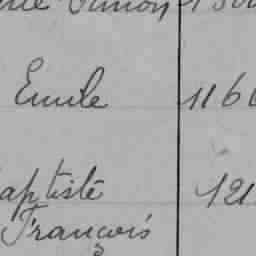 Simon
Emile 116
aptiste 121
François